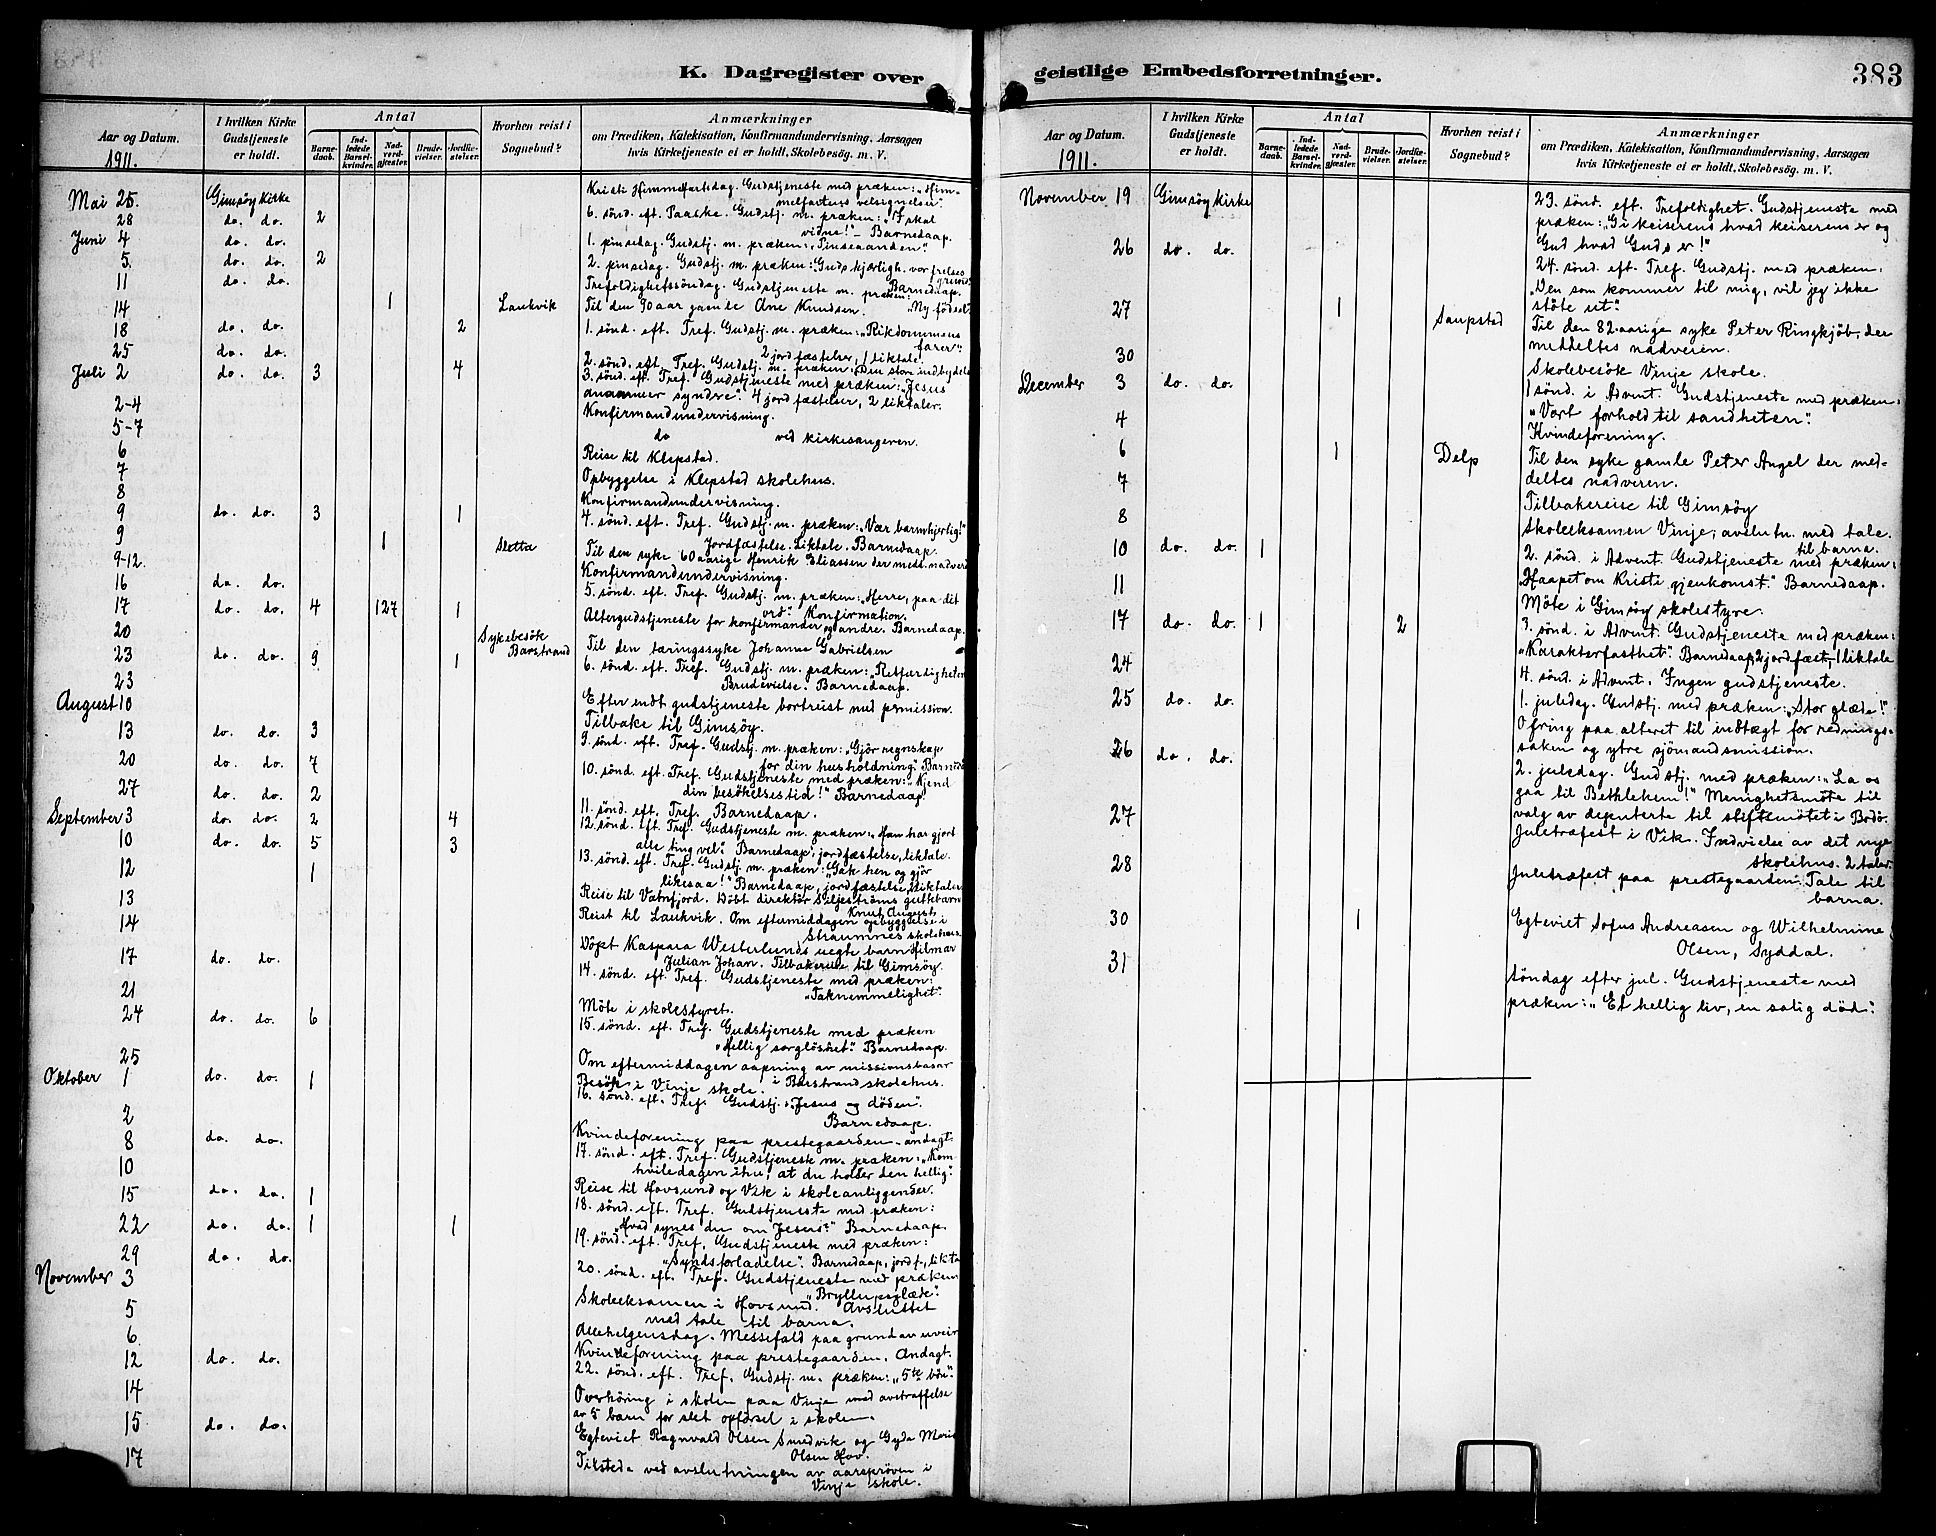 K. Dagregister over
Aar og Datum.
1911.
I hvilken Kirke Gudstjeneste er holdt.
Antal
Barnedaab.
Indledede Barselkvinder.
Nadverdgjæster.
Brudevielser.
Jordfæstelser.
Hvorhen reist i Sognebud?
Anmærkninger
om Prædiken, Katekisation, Konfirmandundervisning, Aarsagen
hvis Kirketjeneste ei er holdt, Skolebesøg. m. V.
Mai 25. Gimsöy Kirke Kristi Himmelfartsdag. Gudstjeneste med præken: „Him-
melfartens velsignelser."
28 do. do. 2 6. sönd. eft. Paaske. Gudstj. m. præken: „I skal
vidne!" – Barnedaap.
Juni 4 do. do. 1. pinsedag. Gudstj. m. præken: „Pinseaanden".
5. do. do. 2 2. pinsedag. Gudstj. m. præken: Guds kjærligh. vor frelses
grund. Barnedaap.
11 do. do. Trefoldighetssöndag. Gudstjeneste m. præken:
„Ny födsel."
14 1 Laukvik Til den 90 aar gamle Ane Knudsen.
18 do. do. 2 1. sönd. eft. Tref. Gudstj. m. præken: „Rikdommens
farer".
2 jordfæstelser, 1 liktale.
25 do. do. 2. sönd. eft. Tref. Gudstj. m. præken: „Den store indbydelse
Juli 2 do. do. 3 4 3. sönd. eft. Tref. Gudstjeneste med præken: „Jesus
anammer syndere". 4 jordfæstelser, 2 liktaler.
2-4 Konfirmandundervisning.
5-7 do ved kirkesangeren.
6 Reise til Klepstad.
7 Opbyggelse i Klepstad skolehus.
8 Konfirmandundervisning.
9 do. do. 3 1 4. sönd. eft. Tref. Gudstj. m. præken: „Vær barmhjertig!"
Jordfæstelse. Liktale. Barnedaap.
9 1 Sletta Til den syke 60 aarige Henrik Eliassen der medd. nadverd
9-12. Konfirmandundervisning.
16 do. do. 5. sönd. eft. Tref. Gudstj. m. præken: „Herre, paa dit
ord". Konfirmation.
17 do. do. 4 127 1 Altergudstjeneste for konfirmander og andre. Barnedaap.
20 Sykebesök Barstrand Til den tæringssyke Johanna Gabrielsen
23 do. do. 9 1 6. sönd. eft. Tref. Gudstj. m. præken: „Retfærdigheten
Brudevielse. Barnedaap.
23 Efter endt gudstjeneste bortreist med permission.
August 10 Tilbake til Gimsöy.
13 do. do. 3 9. sönd. eft. Tref. Gudstj. m. præken: „Gjör regnskap
for din husholdning." Barneda
20 do. do. 7 10. sönd. eft. Tref. Gudstjeneste med præken: „Kjend
din besökelsestid!" Barnedaap.
27 do. do. 2 11. sönd. eft. Tref. Barnedaap.
September 3 do. do. 2 4 12. sönd. eft. Tref. Gudstjeneste m. præken: „Han har gjort
alle ting vel". Barnedaap, jordfæstelse, liktale.
10 do. do. 5 3 13. sönd. eft. Tref. Gudstj. m. præken: „Gak hen og gjör
likesaa!" Barnedaap, jordfæstelse, liktaler
12 1 Reise til Vatnfjord. Döbt direktör Siljeströms guttebarn
Knut August.
13 Reist til Laukvik. Om eftermiddagen opbyggelse i
Straumnes skolehus.
14 Döpt Kaspara Westerlunds uegte barn Hilmar
Julian Johan. Tilbakereise til Gimsöy.
17 do. do. 14. sönd. eft. Tref. Gudstjeneste med præken:
„Taknemmelighet".
21 Möte i skolestyret.
24 do. do. 6 15. sönd. eft. Tref. Gudstjeneste med præken
„Hellig sorglöshet". Barnedaap.
Om eftermiddagen aapning av missionsbasar
i Barstrand skolehus.
25 Besök i Vinje skole.
Oktober 1 do. do. 1 16. sönd. eft. Tref. Gudstj. „Jesus og döden".
Barnedaap.
2 Kvindeforening paa prestegaarden. andagt.
8 do. do. 17. sönd. eft. Tref. Gudstjeneste m. præken: „Kom
hviledagen ihu, at du holder den hellig".
10 Reise til Hovsund og Vik i skoleanliggender.
15 do. do. 1 18. sönd. eft. Tref. Gudstjeneste med præken:
„Hvad synes du om Jesus?" Barnedaap.
22 do. do. 1 1 19. sönd. eft. Tref. Gudstjeneste med præken:
„Syndsforladelse". Barnedaap, jordf., likta
29 do. do. 20. sönd. eft. Tref. Gudstjeneste med præken
„Bryllupsglæde".
November 3 Skoleeksamen i Hovsund. Avsluttet
med tale til barna.
5 Allehelgensdag. Messefald paa grund av uveir
6 Kvindeforening paa prestegaarden. Andagt.
12 do. do. 22. sönd. eft. Tref. Gudstj. m. præken: „5te bön".
14 Overhöring i skolen paa Vinje med avstraffelse
av 5 barn for slet opförsel i skolen.
15 do. do. Egteviet Ragnvald Olsen Smedvik og Gyda Marie
Olsen Hov.
17 Tilstede ved avslutningen av aarspröven i
Vinje skole.
geistlige Embedsforretninger.
383
Aar og Datum.
1911.
I hvilken Kirke Gudstjeneste er holdt.
Antal
Barnedaab.
Indledede Barselkvinder.
Nadverdgjæster.
Brudevielser.
Jordfæstelser.
Hvorhen reist i Sognebud?
Anmærkninger
om Prædiken, Katekisation, Konfirmandundervisning, Aarsagen
hvis Kirketjeneste ei er holdt, Skolebesøg. m. V.
November 19 Gimsöy kirke 23. sönd. eft. Trefoldighet. Gudstjeneste med
præken: „Gi keiserens hvad keiserens er og
Gud hvad Guds er!"
26 do. do. 24. sönd. eft. Tref. Gudstj. med præken:
„Den som kommer til mig, vil jeg ikke
stöte ut".
27 1 Saupstad Til den 82-aarige syke Peter Ringkjöb, der
meddeltes nadveren.
30 Skolebesök Vinje skole.
December 3 do. do. 1 sönd. i Advent. Gudstjeneste med præken:
„Vort forhold til sandheten".
4 Kvindeforening.
6 1 Delp Til den syke gamle Peter Angel der med-
deltes nadveren.
7 Tilbakereise til Gimsöy
8 Skoleeksamen Vinje, avslutn. med tale.
til barna.
10 do. do. 1 2. sönd. i Advent. Gudstjeneste med præken:
„Haapet om Kristi gjenkomst". Barnedaap.
11 Möte i Gimsöy skolestyre.
17 do. do. 1 2 3. sönd. i Advent. Gudstjeneste med præken:
„Karakterfasthet". Barnedaap, 2 jordfæst., 1 liktale
24 4. sönd. i Advent. Ingen gudstjeneste.
25 do. do. 1. juledag. Gudstj. med præken: „Stor glæde!"
Ofring paa alteret til indtægt for rednings-
saken og ytre sjömandsmission.
26 do. do. 2. juledag. Gudstj. med præken: „La os
gaa til Bethlehem!" Menighetsmöte til
valg av deputerte til stiftsmötet i Bodö.
27 Juletræfest i Vik. Indvielse av det nye
skolehus. 2 taler.
28 Juletræfest paa prestegaarden. Tale til
barna.
30 1 Egteviet Sofus Andreasen og Wilhelmine
Olsen, Syddal.
31 Söndag efter jul. Gudstjeneste med
præken: „Et hellig liv, en salig död".